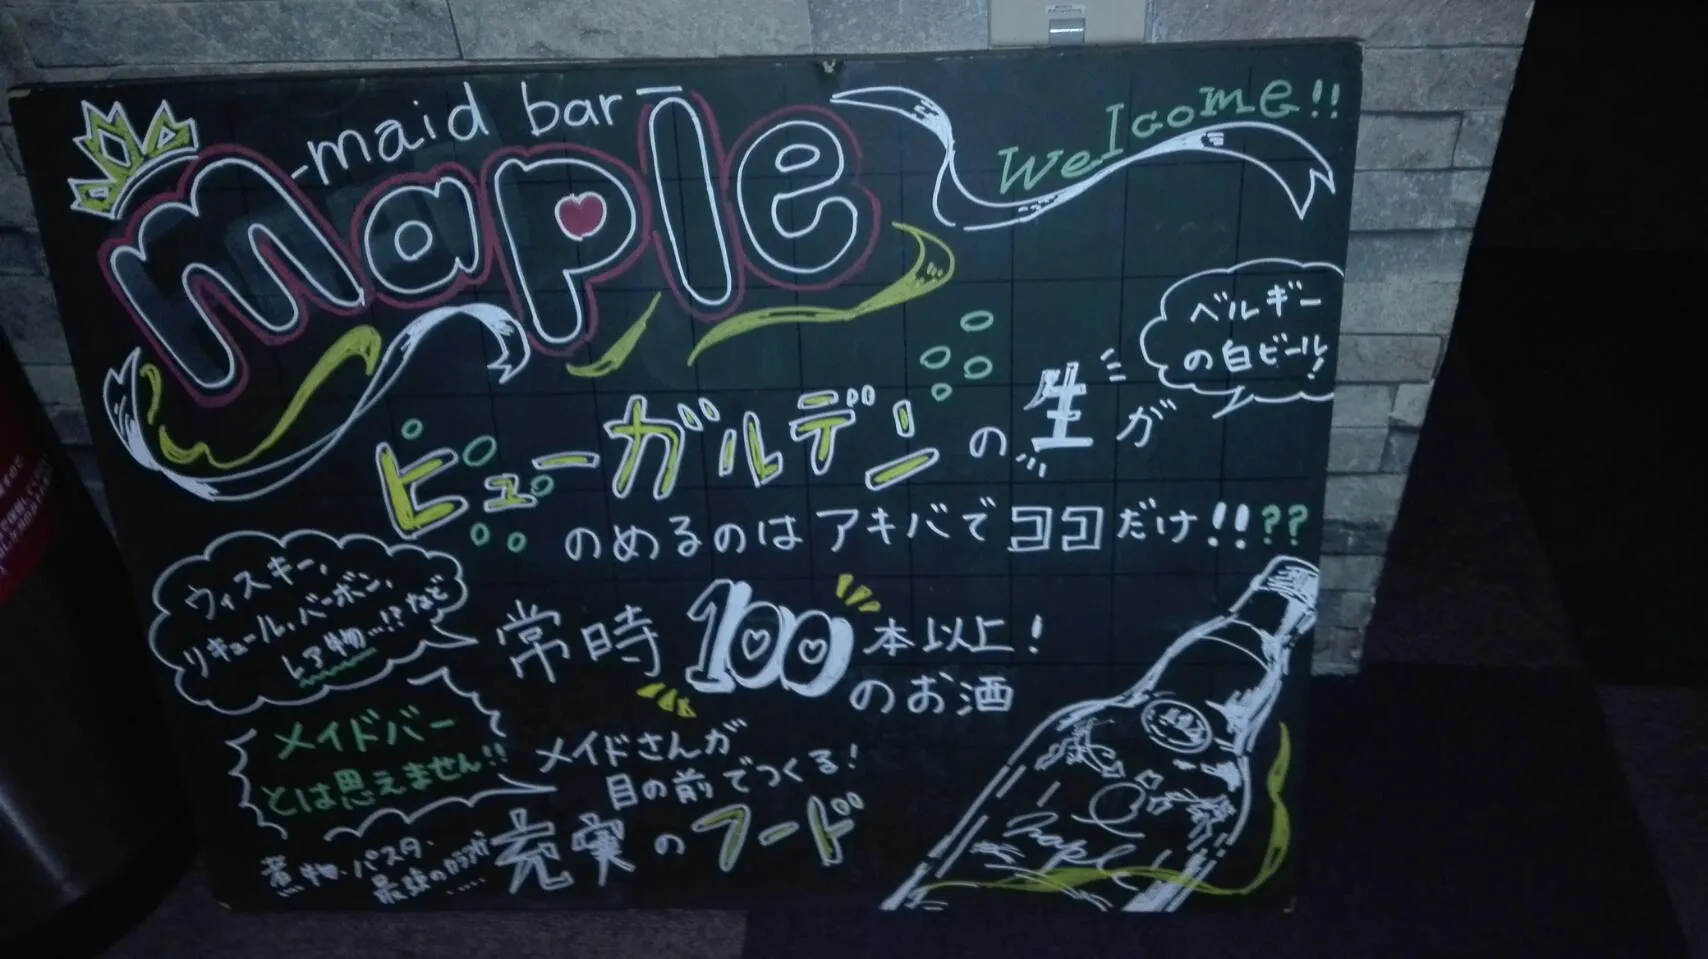 -maid bar-
maple
Welcome!!
ベルギー
の白ビール!
ヒューガルデンの生が
のめるのはアキバでココだけ!!??
ウィスキー、
リキュール、バーボン、
レア物…!?など
常時100本以上!
のお酒
メイドバー
とは思えません!!
メイドさんが
目の前でつくる!
充実のフード
煮物・パスタ・